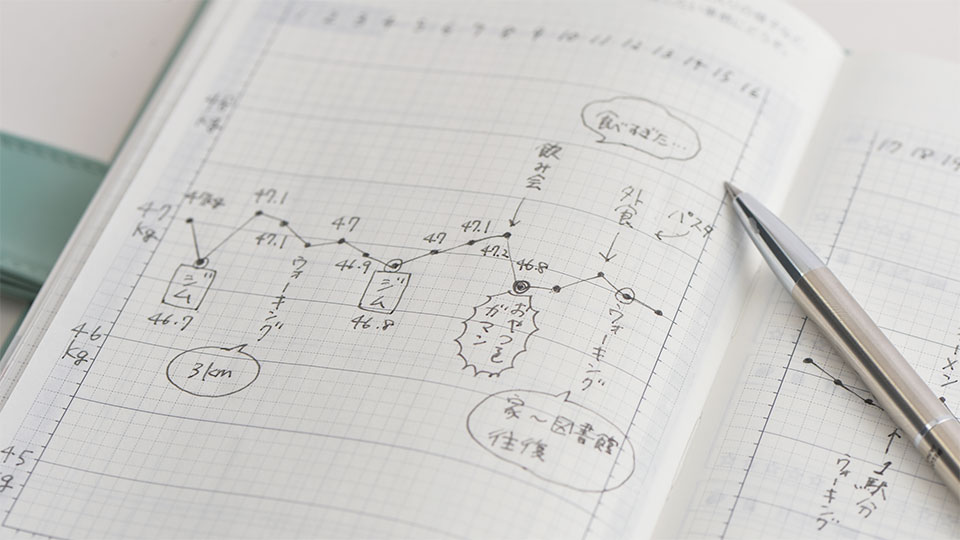 1 2 3 4 5 6 7 8 9 10 11 12 13 14 15 16
48
kg
食べすぎた…
飲み会
外食
パスタ
47
kg
47.1
47.1
47
46.9
47
47.1
47.2
46.8
ジム
46.7
ウォーキング
3km
ジム
46.8
おやつを
ガマン
ウォーキング
家〜図書館
往復
46
kg
45
17 18 19
1駅分
ウォーキング